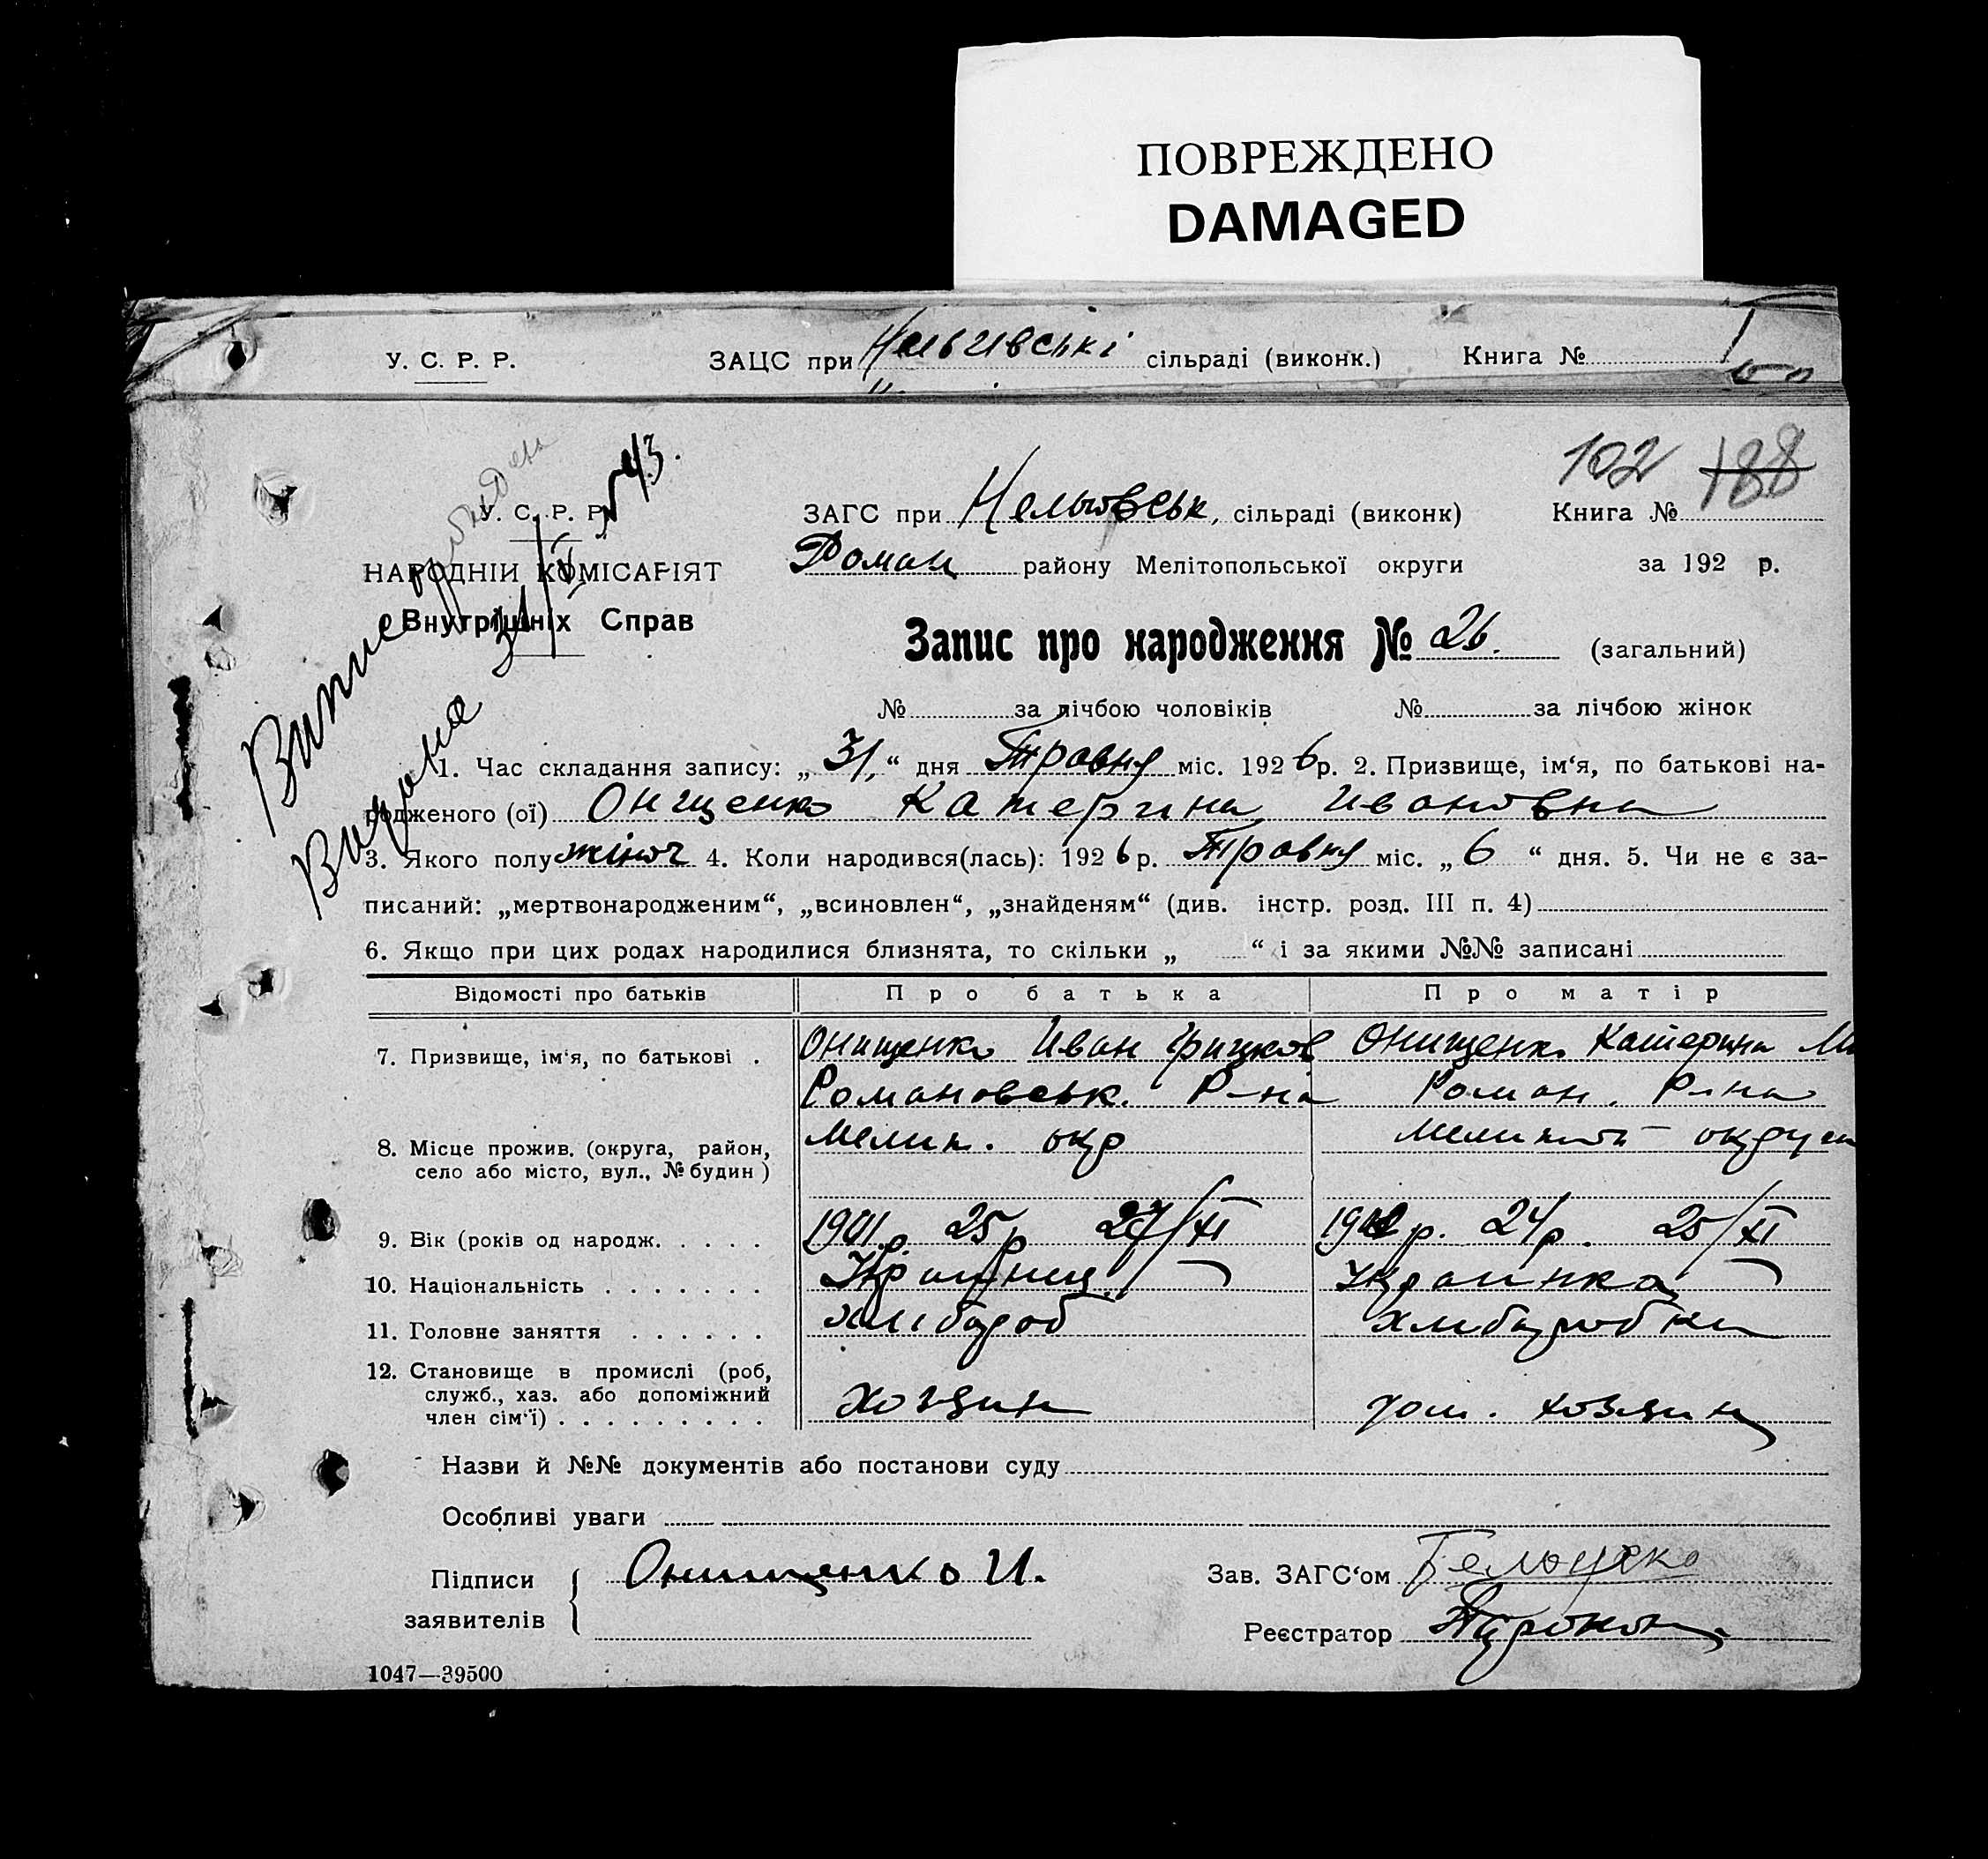 ПОВРЕЖДЕНО
DAMAGED
У. С. Р. Р. ЗАЦС при сільраді (виконк.) Книга №
102 188
У. С. Р. Р. ЗАГС при сільраді (виконк) Книга №
НАРОДНІЙ КОМІСАРІЯТ Роман району Мелітопольської округи за 192 р.
Внутрішніх Справ
Запис про народження № 26. (загальний)
№ за лічбою чоловіків № за лічбою жінок
1. Час складання запису: „31“ дня Травня міс. 1926 р. 2. Призвище, ім‘я, по батькові на-
родженого (ої) Онищенко Катерина Ивановна
3. Якого полу жіноч 4. Коли народився(лась): 1926 р. Травня міс. „6“ дня. 5. Чи не є за-
писаний: „мертвонародженим“, „всиновлен“, „знайденям“ (див. інстр. розд. III п. 4)
6. Якщо при цих родах народилися близнята, то скільки „ “ і за якими №№ записані
Відомості про батьків Про батька Про матір
7. Призвище, ім‘я, по батькові . Онищенко Иван Онищенко Катерина
Романовськ. Р-на Роман. Р-на
8. Місце прожив. (округа, район, Мелит. окр
село або місто, вул., № будин)
9. Вік (років од народж. . . . . 1901 р. 25 р 27/XI р. 24 р. 25/XI
10. Національність . . . . . . . Українець Украинка
11. Головне заняття . . . . . . хлібороб
12. Становище в промислі (роб,
служб., хаз. або допоміжний хозяин
член сім‘ї) . . . . . . . . .
Назви й №№ документів або постанови суду
Особливі уваги
Підписи Онищенко И. Зав. ЗАГС‘ом
заявителів Реєстратор
1047—39500